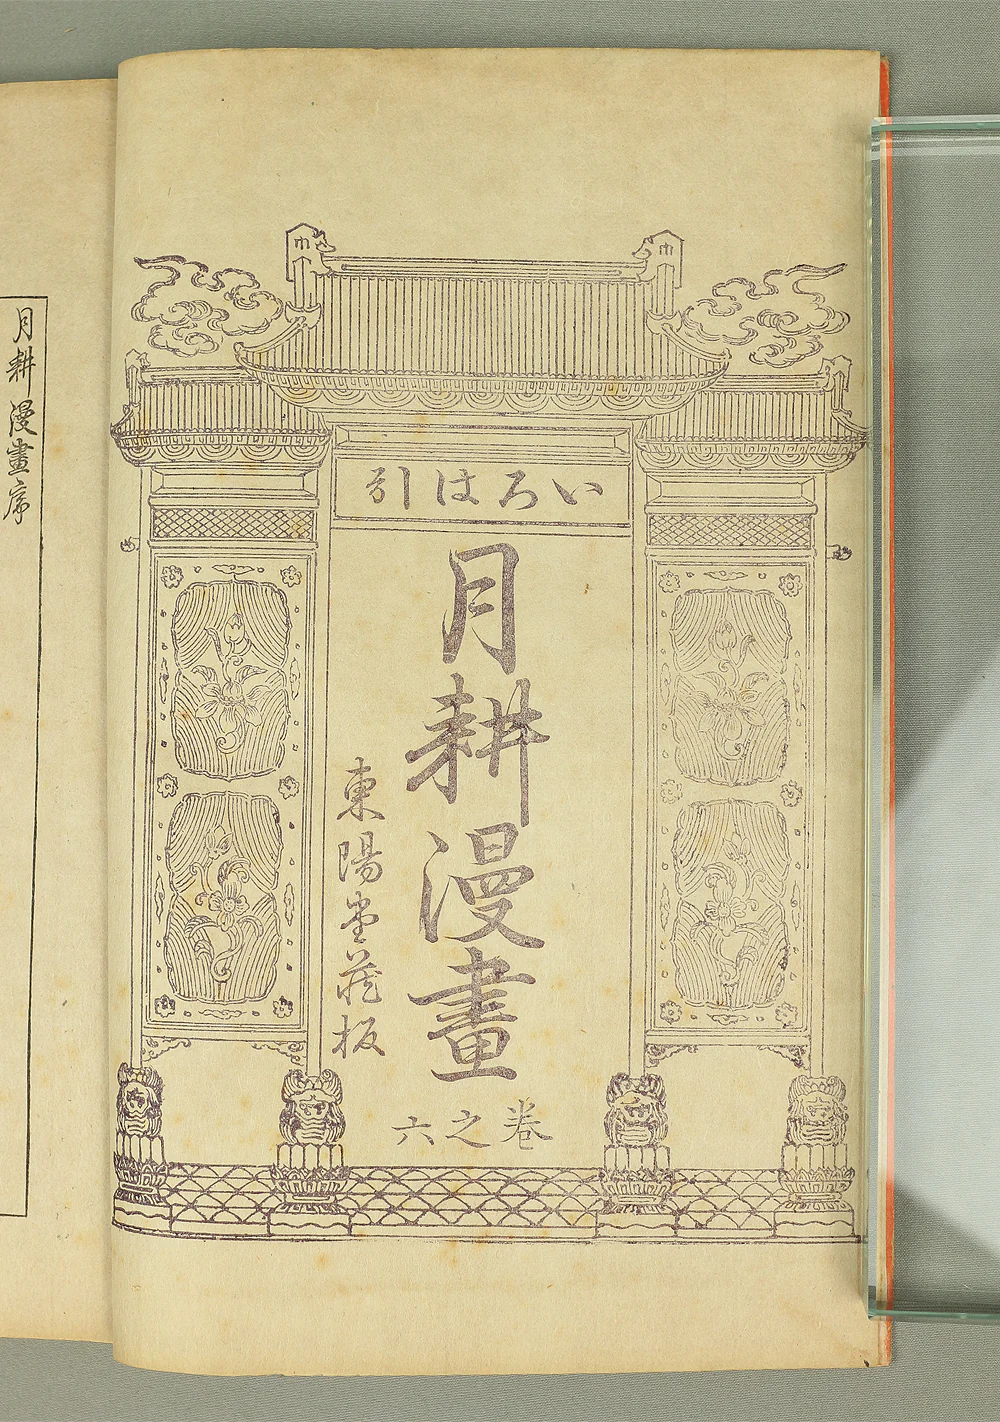 いろは引
月耕漫畫
卷之六
東陽堂藏板
月耕漫畫序